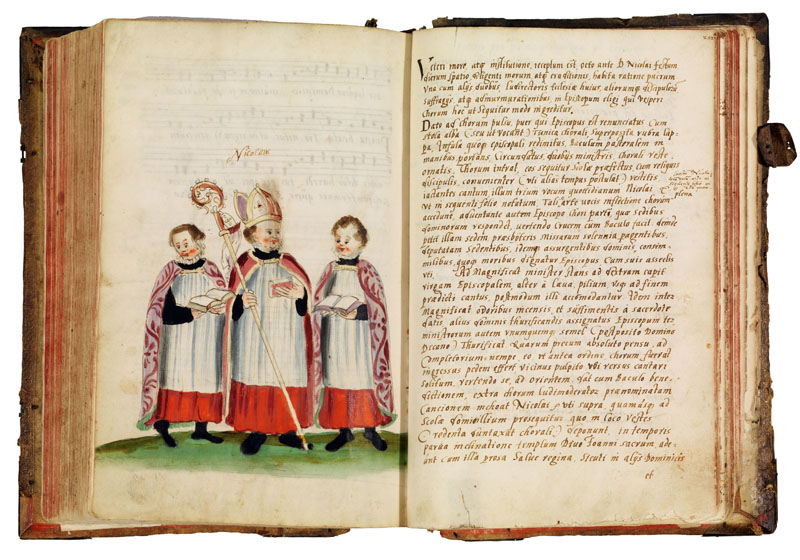 Nicolaus
Veteri more, atq institutione, receptum est, octo ante D. Nicolai festum
dierum spatio, diligenti morum, atq eruditionis, habita ratione puerum
vna cum alijs duobus, ludirectoris ecclesiæ huius, aliorumq discipulorum
suffragijs, atq admurmurationibus, in Episcopum eligi, qui vesperi
chorum hoc ut sequitur modo ingreditur.
Dato ad chorum pulsu, puer qui Episcopus est renunciatus cum
stola alba (seu ut vocant) tunica chorali superposita rubra cap-
pa, Infula quoq episcopali redimitus, Baculum pastoralem in
manibus portans, Circumfusus, duobus ministris chorali veste
ornatis, Chorum intrat, eos sequitur Scolæ præfectus, cum reliquis
discipulis, convenienter (vti alias tempus postulat) vestitis
iactantes cantum illum trium vocum quottidianum Nicolai
vt in sequenti folio notatum. Tali arte vocis inflectione chorum
accedunt, adiuvante autem Episcopo chori parti, quæ sedibus
dominorum respondet, vertendo Crucem cum baculo facit, deinde
petit illam sedem præsbyteris Missarum solennia pagentibus,
deputatam Sedentibus, ijdemq assurgentibus dominis, consim-
milibus, quoq moribus dignatur Episcopus cum suis assectis
vti. Ad Magnificat minister stans ad dextram capit
virgam Episcopalem, alter à læua, pilium usq ad finem
prædicti cantus, postmodum illi accomodantur. Idem inter
Magnificat odoribus incensis, et suffimentis à sacerdote
datis, alius dominis thurificandis assignatus Episcopum ter
ministrorum autem vnumquemq semel (postposito Domino
Decano) Thurificat. Quarum precum absoluto pensu, ad
Completorium nempe, eo vt antea ordine chorum fuerat
ingressus pedem effert, vicinus pulpito vbi versus cantari
solitum, vertendo se, ad orientem, dat cum Baculo bene-
dictionem, extra chorum ludimoderator prænominatam
Cancionem inchoat Nicolai vti supra, quamusq ad
Scolæ domicilium prosequitur, quo in loco vestes
(Credenta duntaxat chorali) deponunt, in temporis
parua inclinatione templum Diuo Ioanni sacrum, ade-
unt cum illa prosa Salue regina, Sicuti in alijs Dominicis
et